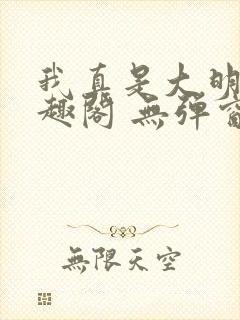 我真是大明
趣閣 無彈窗
無限天空